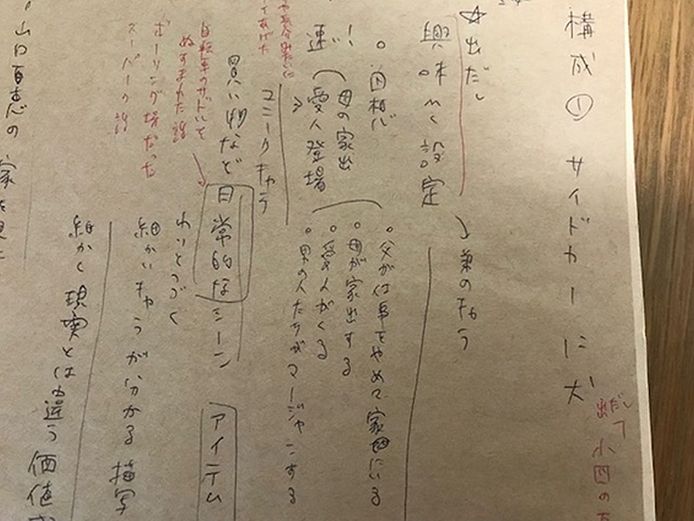 構成① サイドカーに犬
だして
出 小四の
☆出だし
興味 設定
→ 弟のキャラ
。回想
!
速い
母の家出
愛人登場
。父が仕事をやめて家にいる
。母が家出する
。愛人がくる
。男の人たちがマージャンする
ユニークキャラ
買い物など 日常的なシーン アイテム
自転車のサドル
ぬすまれた話
ボーリング場だった
スーパーの話
わりとつづく
細かいキャラが分かる描写
細かく現実とは違う価値
山口百恵の家を見に